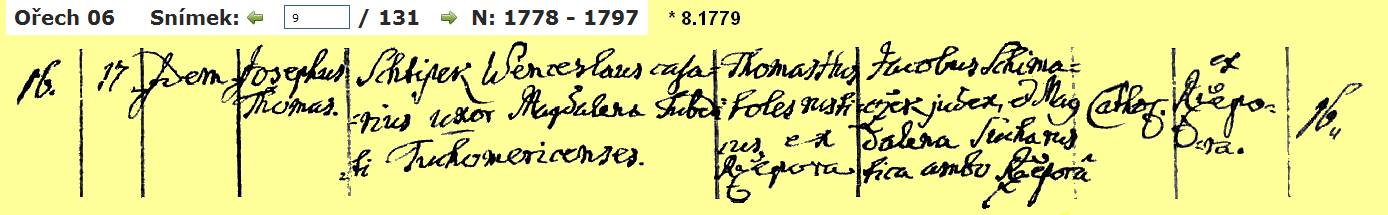 Ořech 06 Snímek: 9 / 131 N: 1778 - 1797 * 8.1779
16. 17 Idem Josephus Thomas.
Schtipek Wenceslaus casa=
=rius uxor Magdalena Subdi=
ti Tuchomericenses.
Thomas Hus
=toles rusti=
cus, ex
Ržepora
Jacobus Schima=
=czek judex, et Mag
dalena Sucha rus
tica ambo Ržeporâ
Cathol.
ex
Ržepo=
ra.
16